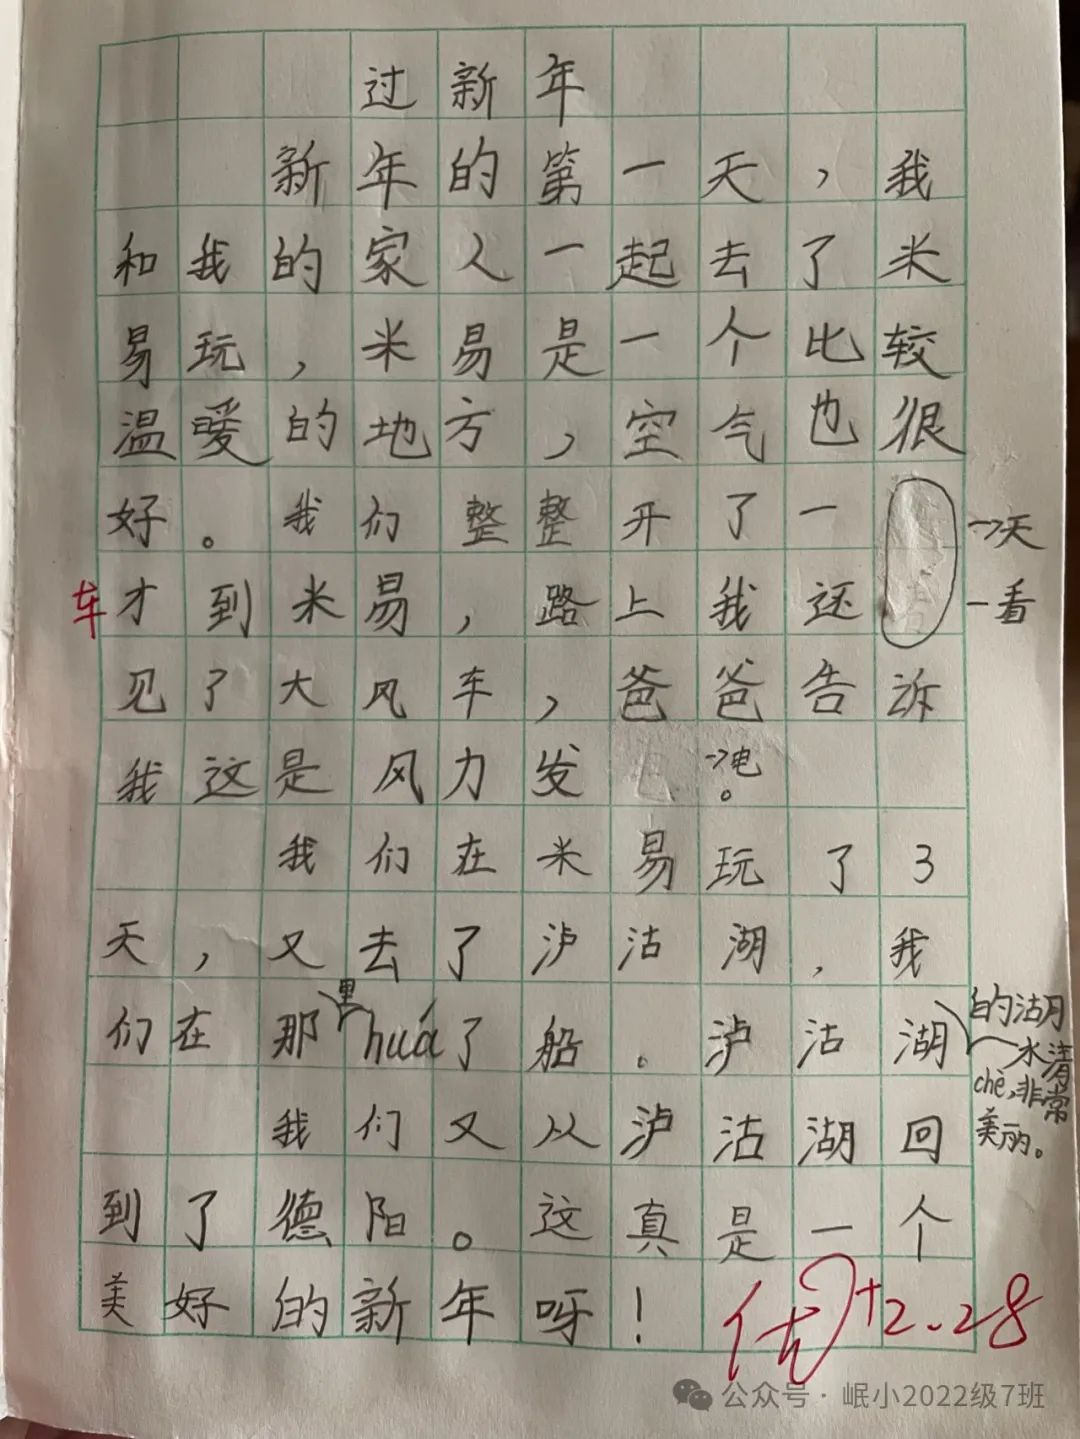 过新年
新年的第一天，我
和我的家人一起去了米
易玩，米易是一个比较
温暖的地方，空气也很
好。我们整整开了一
天
车才到米易，路上我还
看
见了大风车，爸爸告诉
我这是风力发电。
我们在米易玩了3
天，又去了泸沽湖，我
们在那里huá了船。泸沽湖
的湖
水清
chè，非常
美丽。
我们又从泸沽湖回
到了德阳。这真是一个
美好的新年呀！
优+2.28
公众号·岷小2022级7班